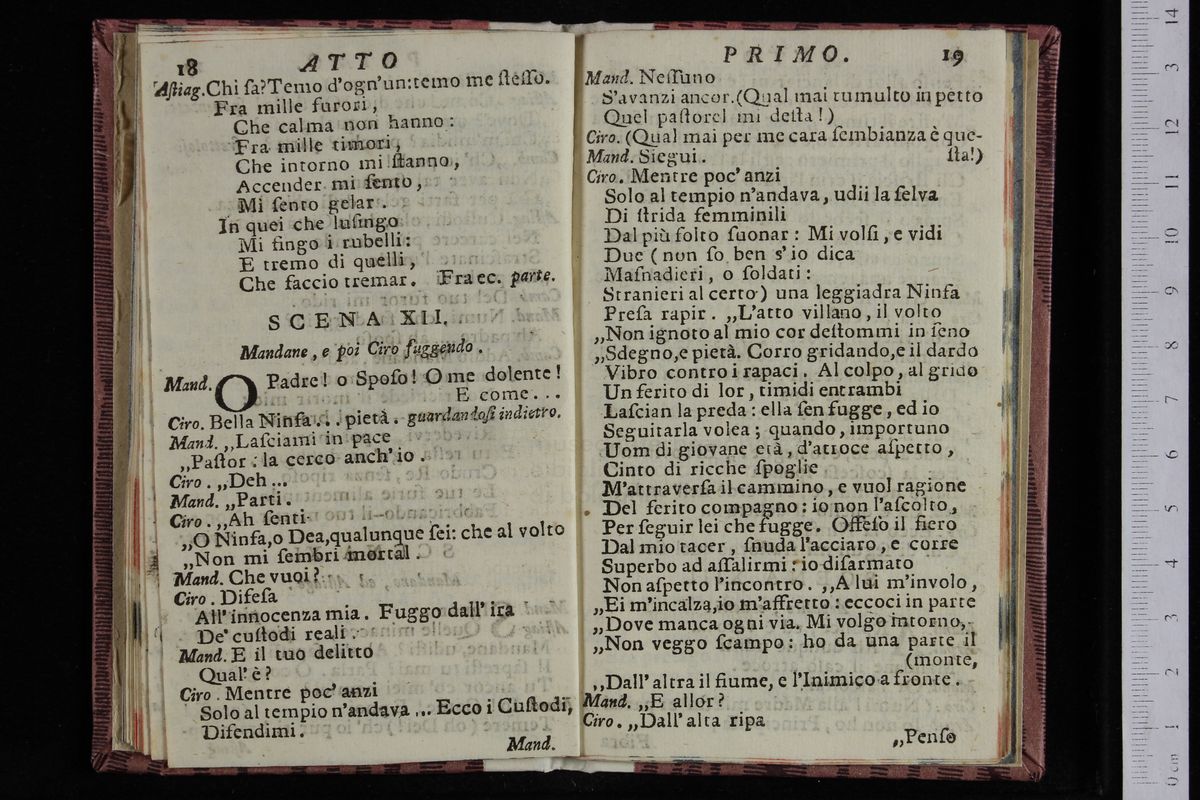 18 ATTO
Astiag. Chi sa? Temo d'ogn'un: temo me stesso.
Fra mille furori,
Che calma non hanno:
Fra mille timori,
Che intorno mi stanno,
Accender mi sento,
Mi sento gelar.
In quei che lusingo
Mi fingo i rubelli:
E tremo di quelli,
Che faccio tremar. Fra ec. parte.
SCENA XII.
Mandane, e poi Ciro fuggendo.
Mand. O Padre! o Sposo! O me dolente!
E come...
Ciro. Bella Ninfa... pietà. guardandosi indietro.
Mand. „Lasciami in pace
„Pastor: la cerco anch'io.
Ciro. „Deh...
Mand. „Parti.
Ciro. „Ah senti
„O Ninfa, o Dea, qualunque sei: che al volto
„Non mi sembri mortal.
Mand. Che vuoi?
Ciro. Difesa
All'innocenza mia. Fuggo dall'ira
De' custodi reali.
Mand. E il tuo delitto
Qual'è?
Ciro. Mentre poc'anzi
Solo al tempio n'andava... Ecco i Custodi,
Difendimi.
Mand.
PRIMO. 19
Mand. Nessuno
S'avanzi ancor. (Qual mai tumulto in petto
Quel pastorel mi desta!)
Ciro. (Qual mai per me cara sembianza è que-
Mand. Siegui. sta!)
Ciro. Mentre poc'anzi
Solo al tempio n'andava, udii la selva
Di strida femminili
Dal più folto suonar: Mi volsi, e vidi
Due (non so ben s'io dica
Masnadieri, o soldati:
Stranieri al certo) una leggiadra Ninfa
Presa rapir. „L'atto villano, il volto
„Non ignoto al mio cor destommi in seno
„Sdegno, e pietà. Corro gridando, e il dardo
Vibro contro i rapaci. Al colpo, al grido
Un ferito di lor, timidi entrambi
Lascian la preda: ella sen fugge, ed io
Seguitarla volea; quando, importuno
Uom di giovane età, d'atroce aspetto,
Cinto di ricche spoglie
M'attraversa il cammino, e vuol ragione
Del ferito compagno: io non l'ascolto,
Per seguir lei che fugge. Offeso il fiero
Dal mio tacer, snuda l'acciaro, e corre
Superbo ad assalirmi: io disarmato
Non aspetto l'incontro. „A lui m'involo,
„Ei m'incalza, io m'affretto: eccoci in parte
„Dove manca ogni via. Mi volgo intorno,
„Non veggo scampo: ho da una parte il
(monte,
„Dall'altra il fiume, e l'Inimico a fronte.
Mand. „E allor?
Ciro. „Dall'alta ripa
„Penso